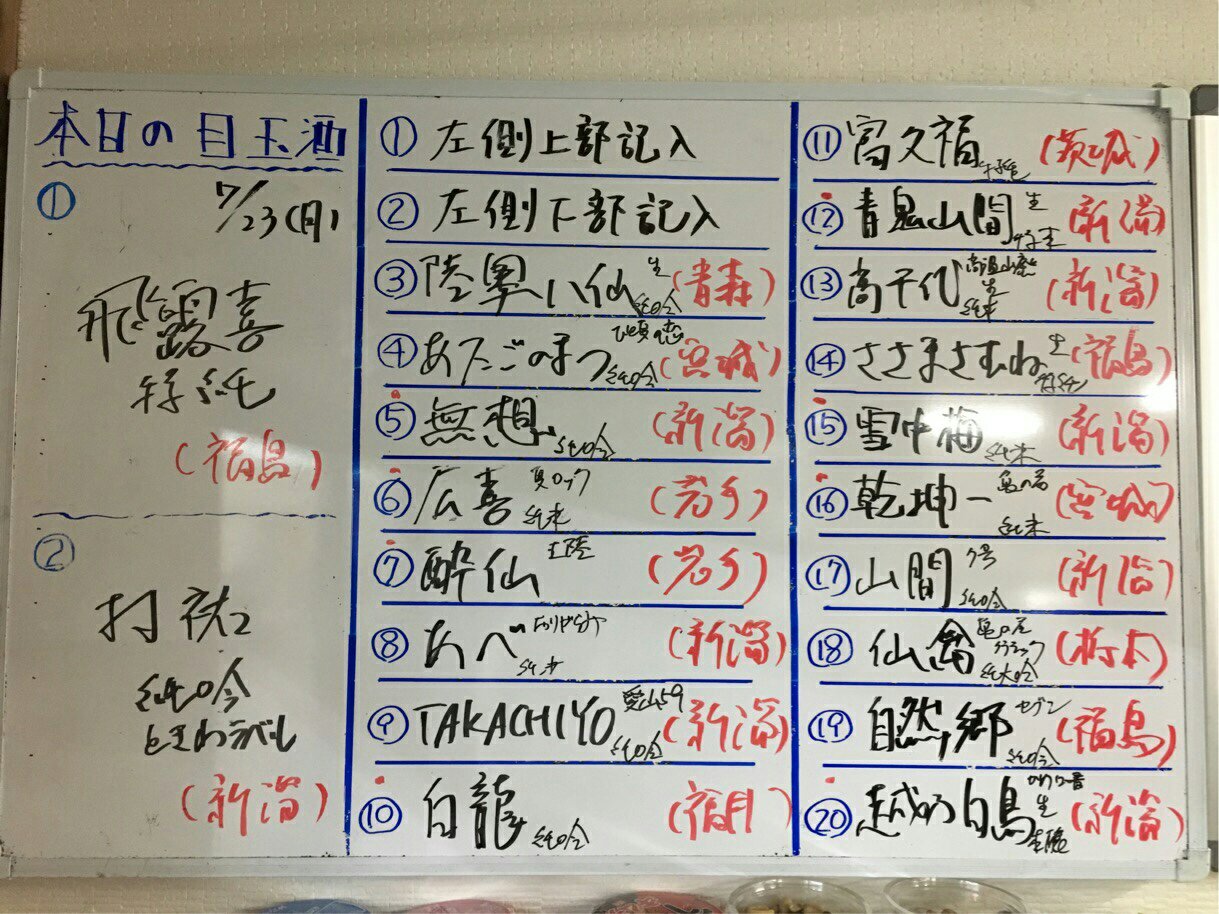 本日の目玉酒
① 7/23(月)
飛露喜
特純
(福島)
②
村祐
純吟
ときわラベル
(新潟)
① 左側上部記入
② 左側下部記入
③ 陸奥八仙 生 純吟 (青森)
④ あたごのまつ ひと夏の恋 純吟 (宮城)
⑤ 無想 純吟 (新潟)
⑥ 広喜 夏ロック 純米 (岩手)
⑦ 酔仙 (岩手)
⑧ あべ 純米 (新潟)
⑨ TAKACHIYO 愛山59 純吟 (新潟)
⑩ 白龍 純吟 (福井)
⑪ 富久福 (茨城)
⑫ 青鬼山間 生 特本 (新潟)
⑬ 高千代 高温山廃 生 純米 (新潟)
⑭ ささまさむね 生 特純 (福島)
⑮ 雪中梅 純米 (新潟)
⑯ 乾坤一 純米 (宮城)
⑰ 山間 7号 純吟 (新潟)
⑱ 仙禽 亀ノ尾 純大吟 (栃木)
⑲ 自然郷 セブン 純吟 (福島)
⑳ 越の白鳥 かわり番 生 (新潟)